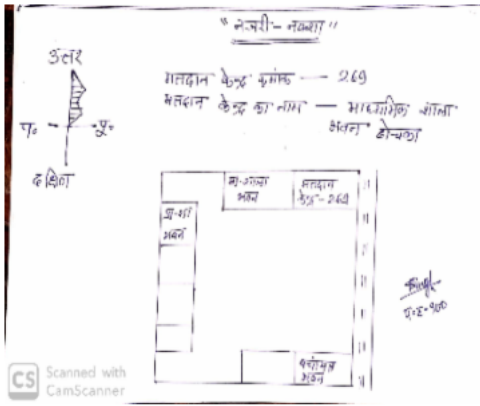 "नजरी-नक्शा"
उत्तर
प०
पू०
दक्षिण
मतदान केन्द्र क्रमांक — 269
मतदान केन्द्र का नाम — माध्यमिक शाला
भवन
भवन
मतदान
केन्द्र-269
भवन
पंचायत
भवन
CS Scanned with
CamScanner